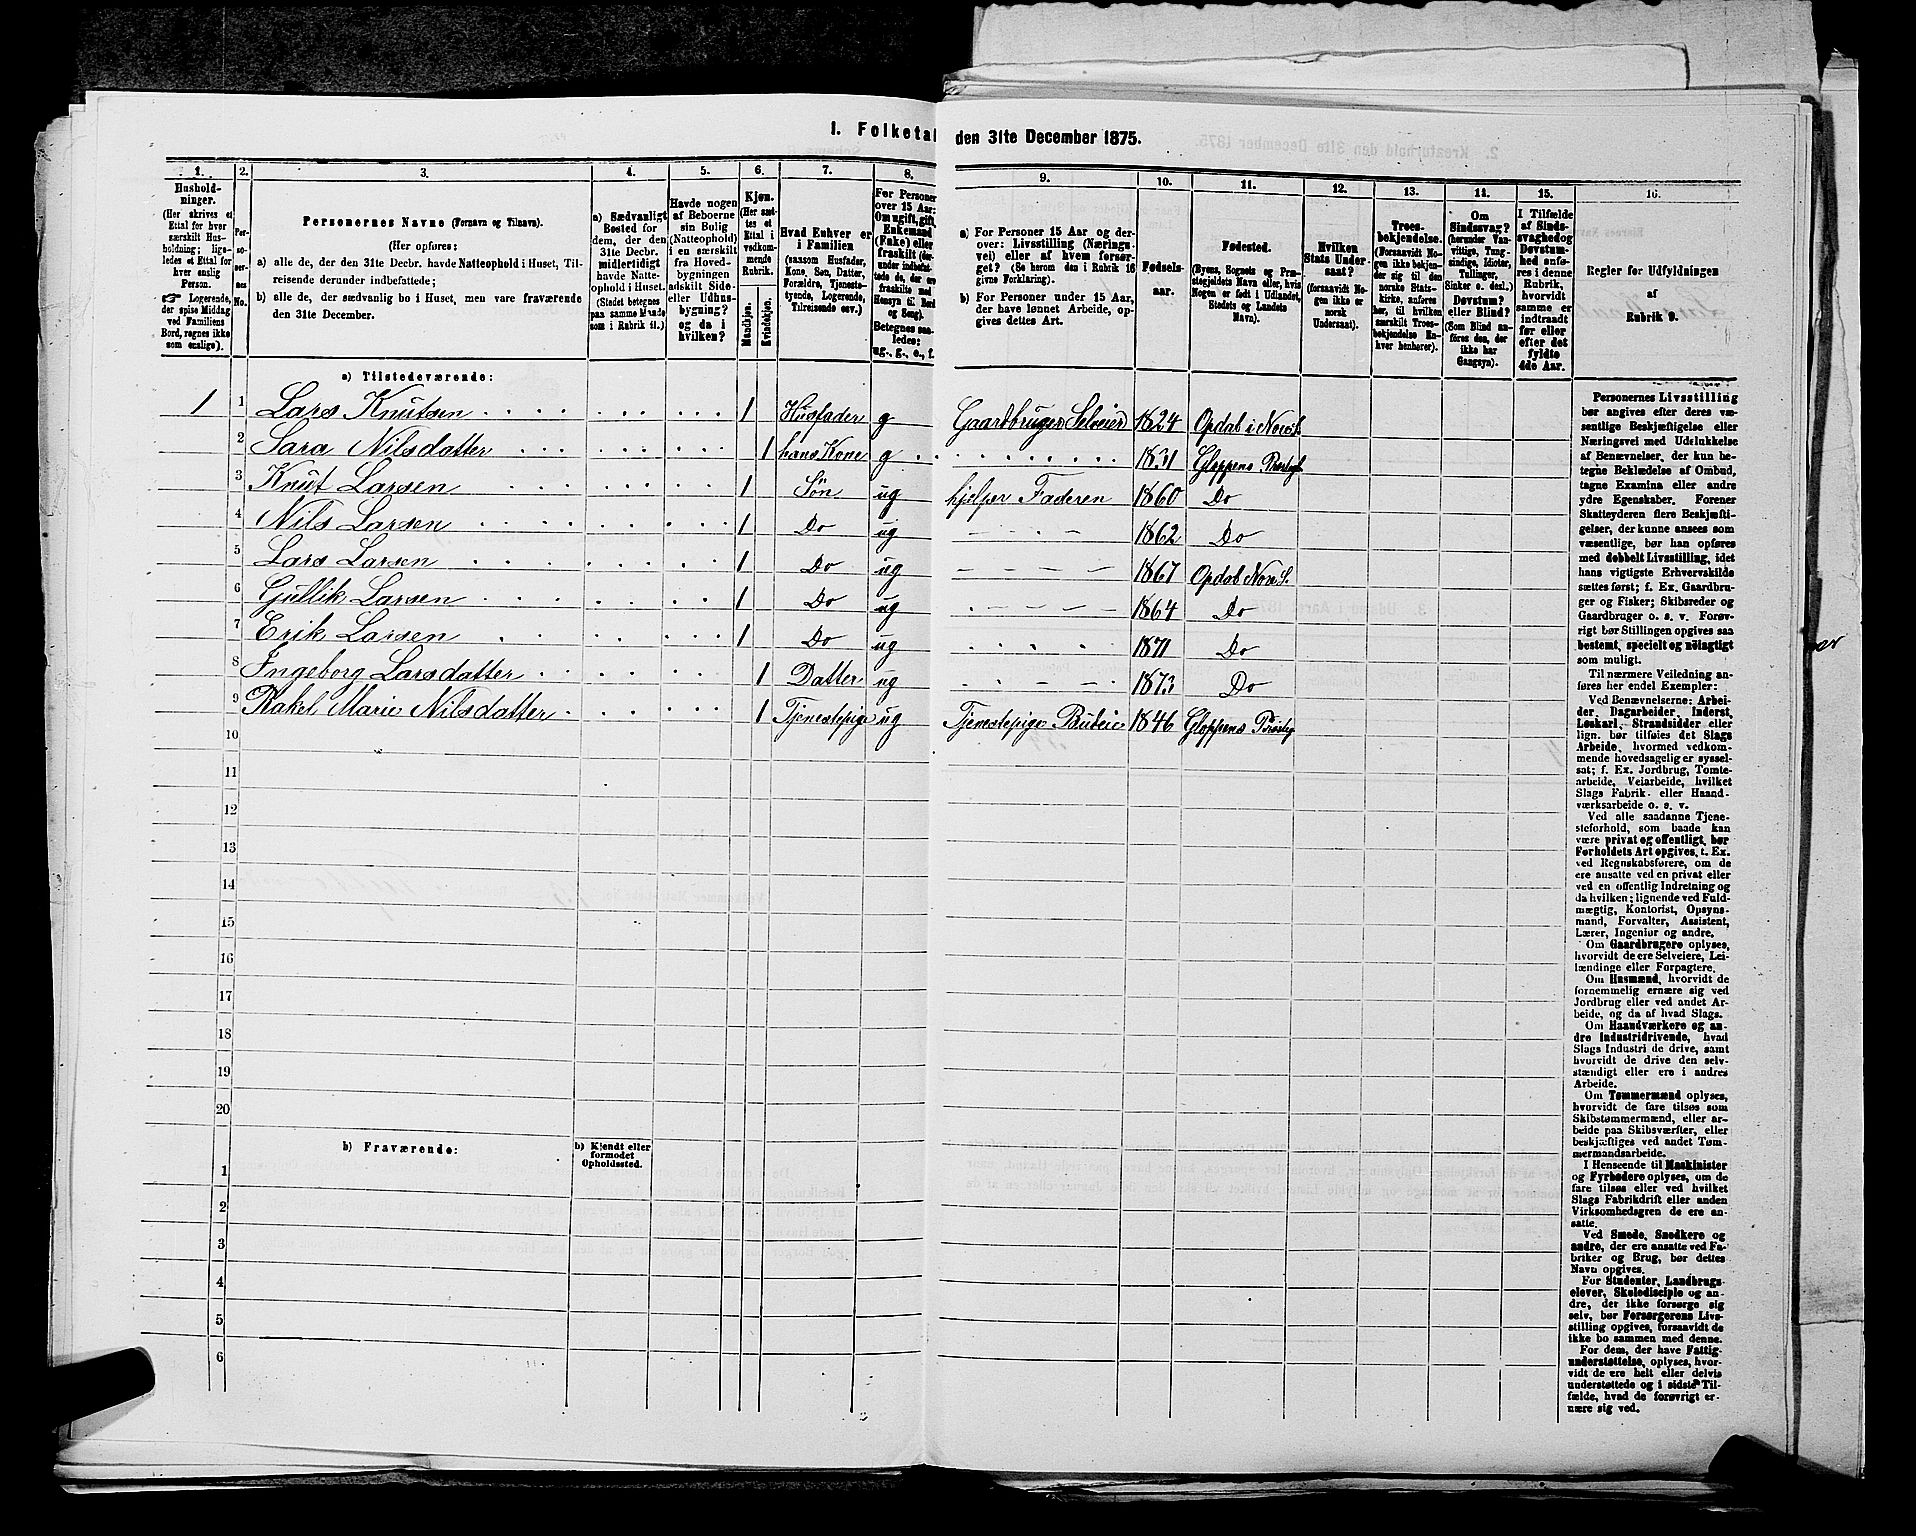 I. Folketal den 31te December 1875.
1. 2. 3. 4. 5. 6. 7. 8. 9. 10. 11. 12. 13. 14. 15. 16.
Hushold-
ninger.
(Her skrives et
Ettal for hver
særskilt Hus-
holdning; lige-
ledes et Ettal for
hver enslig
Person.
☞ Logerende,
der spise Middag
ved Familiens
Bord, regnes ikke
som enslige).
Per-
so-
ner-
nes
No.
Personernes Navne (Fornavn og Tilnavn).
(Her opføres:
a) alle de, der den 31te Decbr. havde Natteophold i Huset, Til-
reisende derunder indbefattede;
b) alle de, der sædvanlig bo i Huset, men vare fraværende
den 31te December.
a) Sædvanligt
Bosted for
dem, der den
31te Decbr.
midlertidigt
havde Natte-
ophold i Huset.
(Stedet betegnes
paa samme Maade
som i Rubrik 11.)
Havde nogen
af Beboerne
sin Bolig
(Natteophold)
i en særskilt
fra Hoved-
bygningen
adskilt Side-
eller Udhus-
bygning?
og da i
hvilken?
Kjøn.
(Her sæt-
tes et
Ettal i
vedkom-
mende
Rubrik.
Mandkjøn.
Kvindekjøn.
Hvad Enhver er
i Familien
(saasom Husfader,
Kone, Søn, Datter,
Forældre, Tjeneste-
tyende, Logerende,
Tilreisende osv.)
For Personer
over 15 Aar:
Om ugift, gift,
Enkemand
(Enke) eller
fraskilt (der-
under indbefat-
tede de, der ere
fraskilte med
Hensyn til Bord
og Seng).
Betegnes saa-
ledes:
ug., g., e., f.
a) For Personer 15 Aar og der-
over: Livsstilling (Nærings-
vei) eller af hvem forsør-
get? (Se herom den i Rubrik 16
givne Forklaring).
b) For Personer under 15 Aar,
der have lønnet Arbeide, op-
gives dettes Art.
Fødsels-
aar.
Fødested.
(Byens, Sognets og Præ-
stegjeldets Navn eller, hvis
Nogen er født i Udlandet,
Stedets og Landets
Navn).
Hvilken
Stats Under-
saat?
(forsaavidt No-
gen ikke er
norsk
Undersaat).
Troes-
bekjendelse.
(Forsaavidt No-
gen ikke bekjen-
der sig til den
norske Stats-
kirke, anføres
her, til hvilken
særskilt Troes-
bekjendelse En-
hver henhører).
Om
Sindssvag?
(herunder Van-
vittige, Tung-
sindige, Idioter,
Tullinger,
Sinker o. desl.)
Døvstum?
eller Blind?
(Som Blind an-
føres den, der
ikke har
Gangsyn).
I Tilfælde
af Sinds-
svaghed og
Døvstum-
hed anfø-
res i denne
Rubrik,
hvorvidt
samme er
indtraadt
før eller
efter det
fyldte
4de Aar.
Regler for Udfyldningen
af
Rubrik 9.
a) Tilstedeværende:
1 1 Lars Knutsen 1 Husfader g Gaardbruger Selveier 1824 Opdal i Nors.
2 Sara Nilsdatter 1 hans Kone g 1831 Gloppens Prestegj.
3 Knut Larsen 1 Søn ug hjelper Faderen 1860 Do
4 Nils Larsen 1 Do ug 1862 Do
5 Lars Larsen 1 Do ug 1867 Opdal Nors.
6 Gullik Larsen 1 Do ug 1864 Do
7 Erik Larsen 1 Do ug 1871 Do
8 Ingeborg Larsdatter 1 Datter ug 1873 Do
9 Rakel Marie Nilsdatter 1 Tjenestepige ug Tjenestepige Budeie 1846 Gloppens Præsteg
10
11
12
13
14
15
16
17
18
19
20
b) Fraværende: b) Kjendt eller
formodet
Opholdssted.
1
2
3
4
5
6
Personernes Livsstilling
bør angives efter deres væ-
sentlige Beskjæftigelse eller
Næringsvei med Udelukkelse
af Benævnelser, der kun be-
tegne Beklædelse af Ombud,
tagne Examina eller andre
ydre Egenskaber. Forener
Skatteyderen flere Beskjæfti-
gelser, der kunne ansees som
væsentlige, bør han opføres
med dobbelt Livsstilling, idet
hans vigtigste Erhvervskilde
sættes først; f. Ex. Gaardbru-
ger og Fisker; Skibsreder og
Gaardbruger o. s. v. Forøv-
rigt bør Stillingen opgives saa
bestemt, specielt og nøiagtigt
som muligt.
Til nærmere Veiledning an-
føres her endel Exempler:
Ved Benævnelserne: Arbei-
der, Dagarbeider, Inderst,
Løskarl, Strandsidder eller
lign. bør tilføies det Slags
Arbeide, hvormed vedkom-
mende hovedsagelig er syssel-
sat; f. Ex. Jordbrug, Tomte-
arbeide, Veiarbeide, hvilket
Slags Fabrik- eller Haand-
værksarbeide o. s. v.
Ved alle saadanne Tjene-
steforhold, som baade kan
være privat og offentligt, bør
Forholdets Art opgives, t. Ex.
ved Regnskabsførere, om de
ere ansatte ved en privat eller
ved en offentlig Indretning og
da hvilken; lignende ved Fuld-
mægtig, Kontorist, Opsyns-
mand, Forvalter, Assistent,
Lærer, Ingeniør og andre.
Om Gaardbrugere oplyses,
hvorvidt de ere Selveiere, Lei-
lændinge eller Forpagtere.
Om Husmænd, hvorvidt de
fornemmelig ernære sig ved
Jordbrug eller ved andet Ar-
beide, og da af hvad Slags.
Om Haandværkere og an-
dre Industridrivende, hvad
Slags Industri de drive, samt
hvorvidt de drive den selv-
stændigt eller ere i andres
Arbeide.
Om Tømmermænd oplyses,
hvorvidt de fare tilsøs som
Skibstømmermænd, eller ar-
beide paa Skibsværfter, eller
beskjæftiges ved andet Tøm-
mermandsarbeide.
I Henseende til Maskinister
og Fyrbødere oplyses, om de
fare tilsøs eller ved hvilket
Slags Fabrikdrift eller anden
Virksomhedsgren de ere an-
satte.
Ved Smede, Snedkere og
andre, der ere ansatte ved Fa-
briker og Brug, bør dettes
Navn opgives.
For Studenter, Landbrugs-
elever, Skoledisciple og an-
dre, der ikke forsørge sig
selv, bør Forsørgerens Livs-
stilling opgives, forsaavidt de
ikke bo sammen med denne.
For dem, der have Fattig-
understøttelse, oplyses, hvor-
vidt de ere helt eller delvis
understøttede og i sidste Til-
fælde, hvad de forøvrigt er-
nære sig ved.